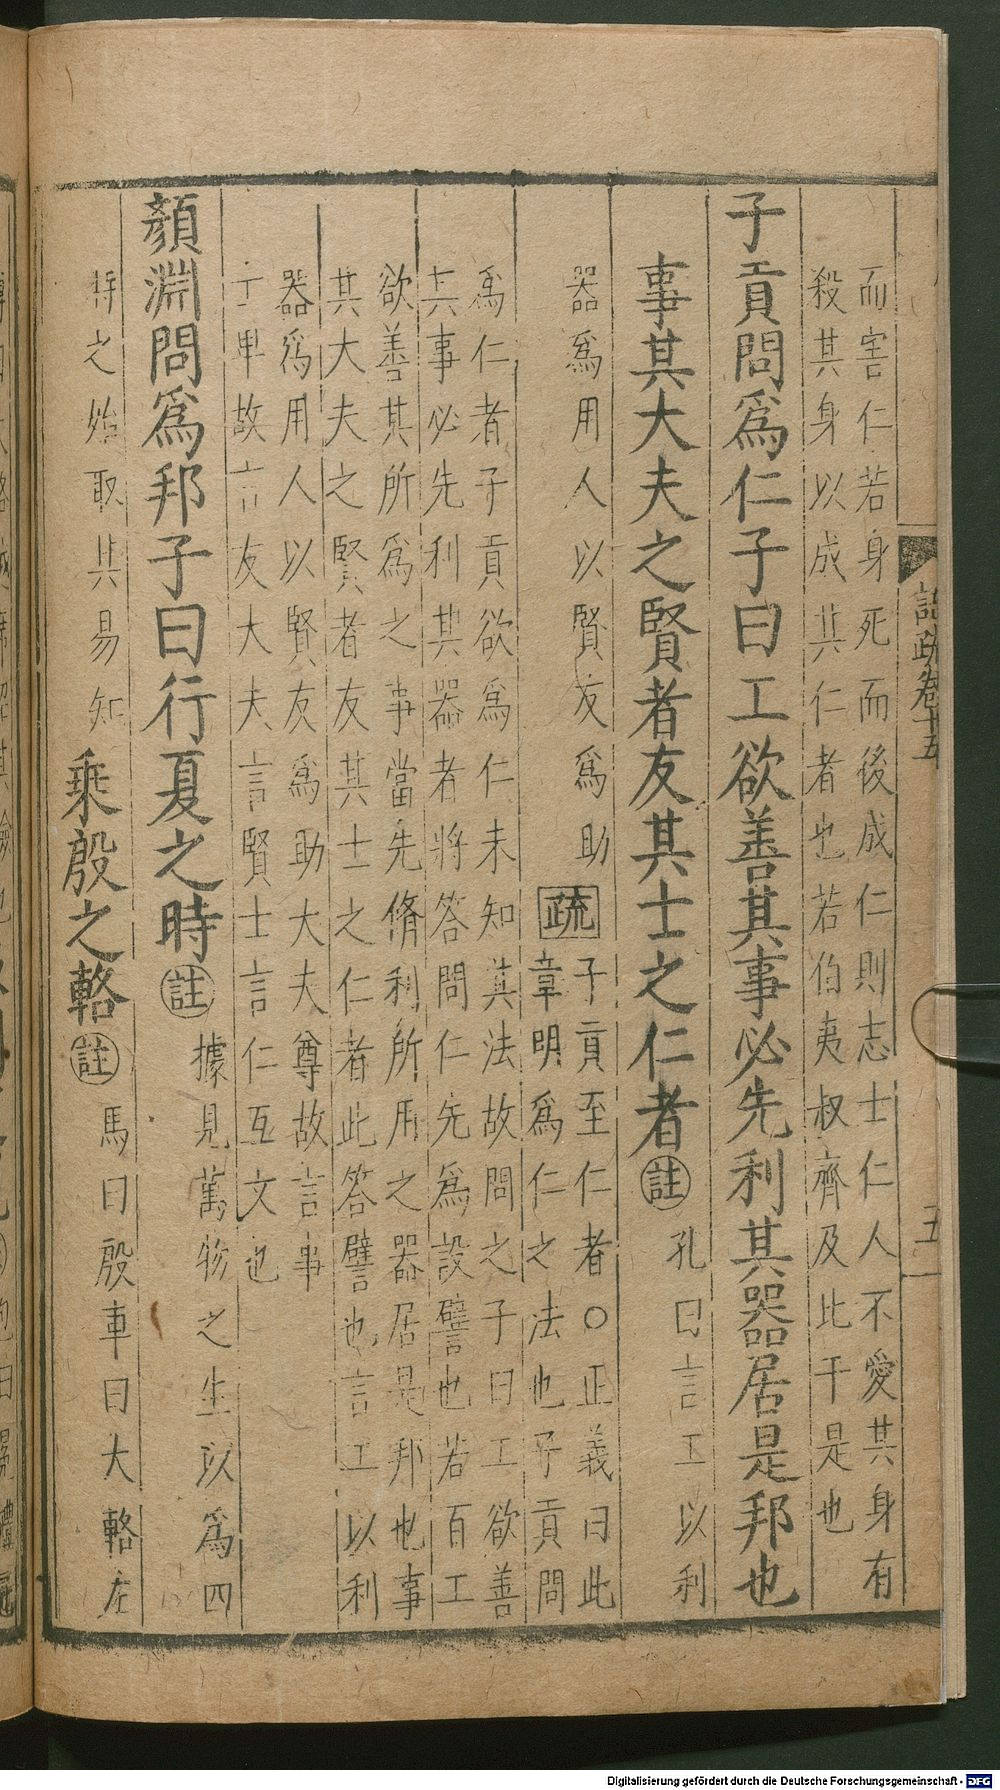 語疏卷十五
五
而害仁若身死而後成仁則志士仁人不愛其身有
殺其身以成其仁者也若伯夷叔齊及比干是也
子貢問爲仁子曰工欲善其事必先利其器居是邦也
事其大夫之賢者友其士之仁者註孔曰言工以利
器爲用人以賢友爲助疏子貢至仁者○正義曰此
章明爲仁之法也子貢問
爲仁者子貢欲爲仁未知其法故問之子曰工欲善
其事必先利其器者將答問仁先爲設譬也若百工
欲善其所爲之事當先脩利所用之器居是邦也事
其大夫之賢者友其士之仁者此答譬也言工以利
器爲用人以賢友爲助大夫尊故言事
士卑故言友大夫言賢士言仁互文也
顏淵問爲邦子曰行夏之時註據見萬物之生以爲四
時之始取其易知乘殷之輅註馬曰殷車曰大輅左
Digitalisierung gefördert durch die Deutsche Forschungsgemeinschaft - DFG